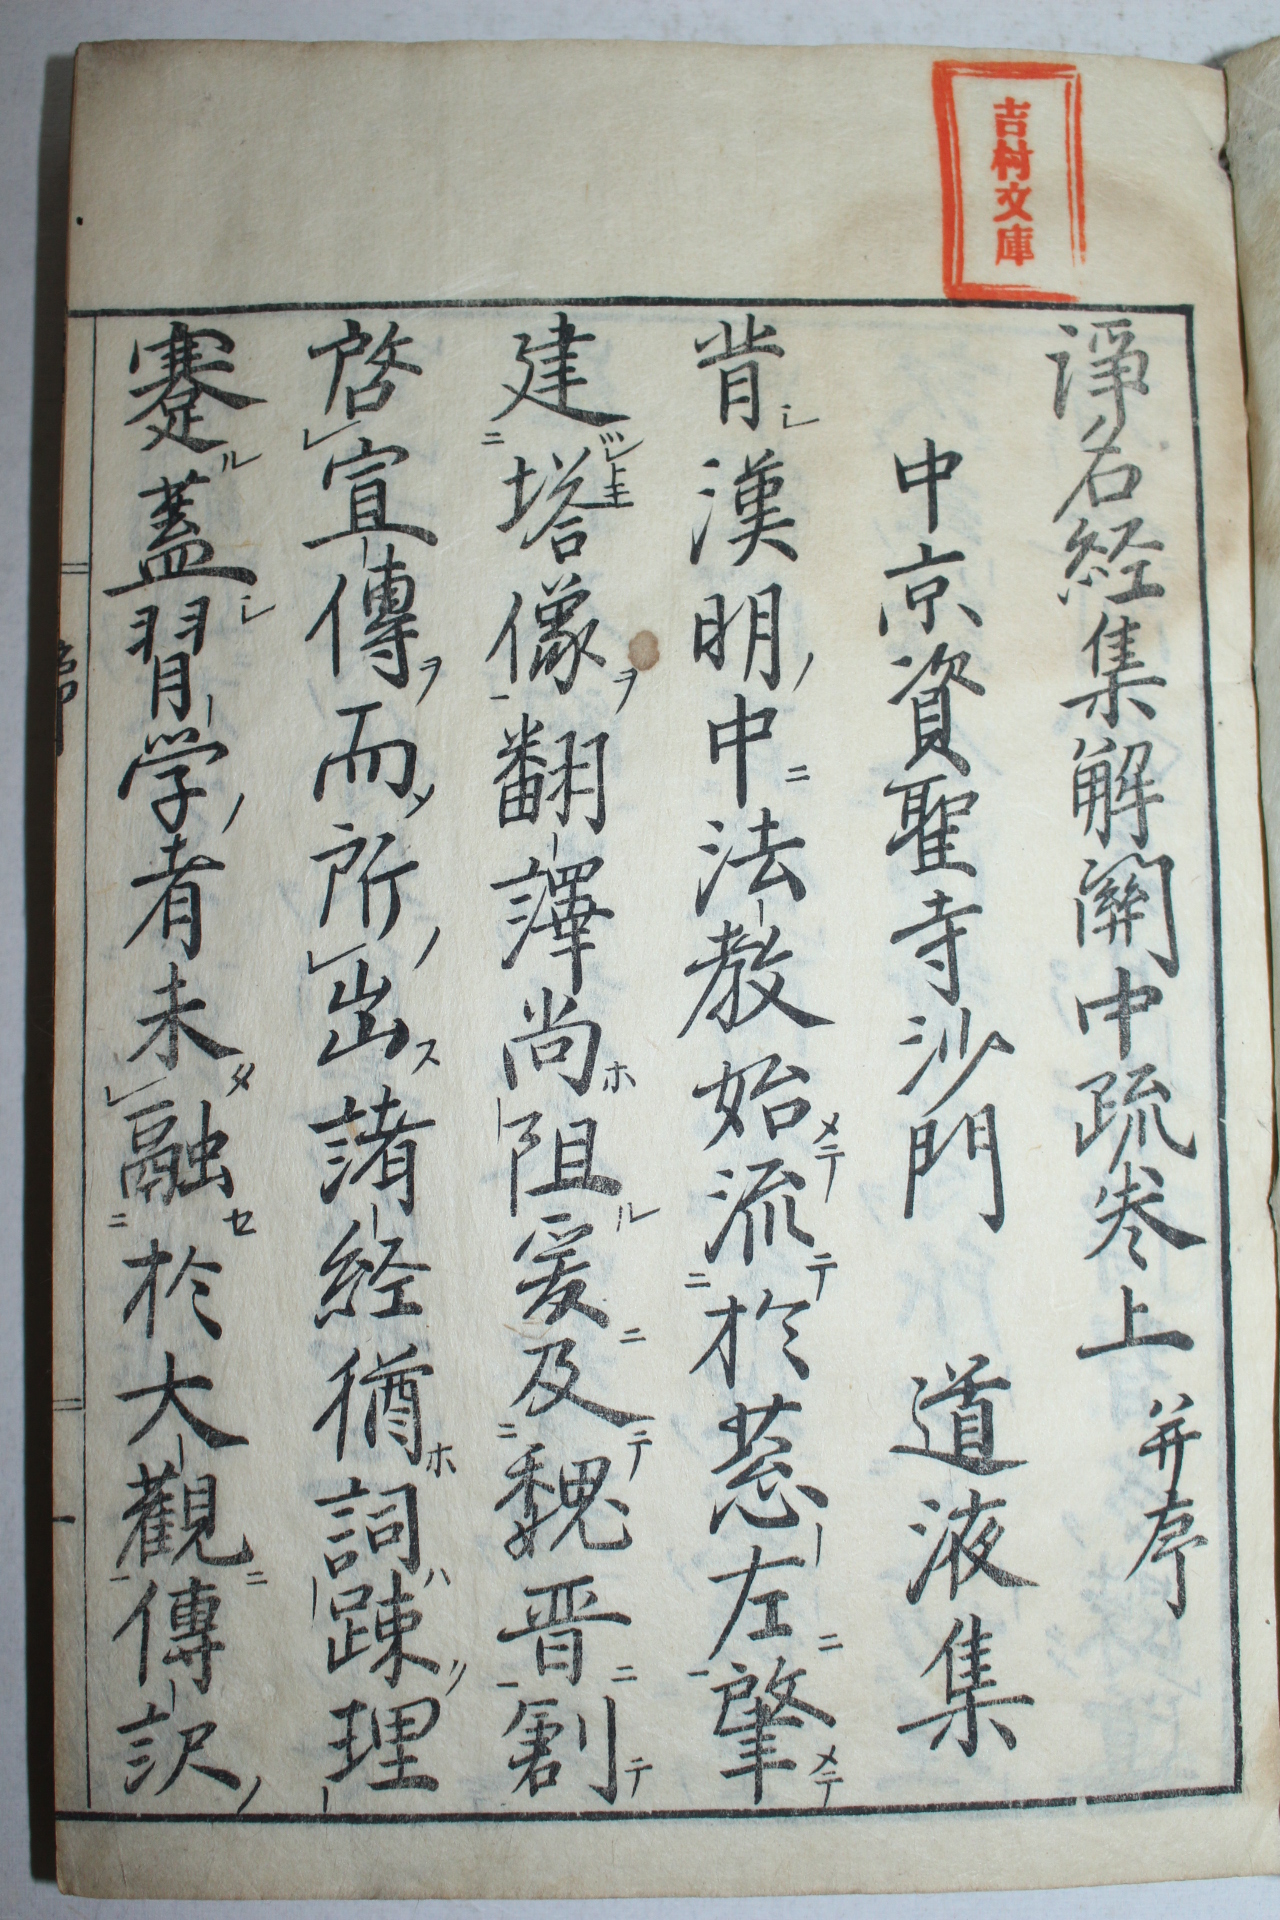 吉村文庫
淨名経集解關中疏巻上 并序
中京資聖寺沙門 道液集
背漢明中法教始流於葱左肇
建塔像翻譯尚阻爰及魏晋創
啓宣傳而所出諸経猶詞踈理
蹇蓋習学者未融於大觀傳訳
序
一